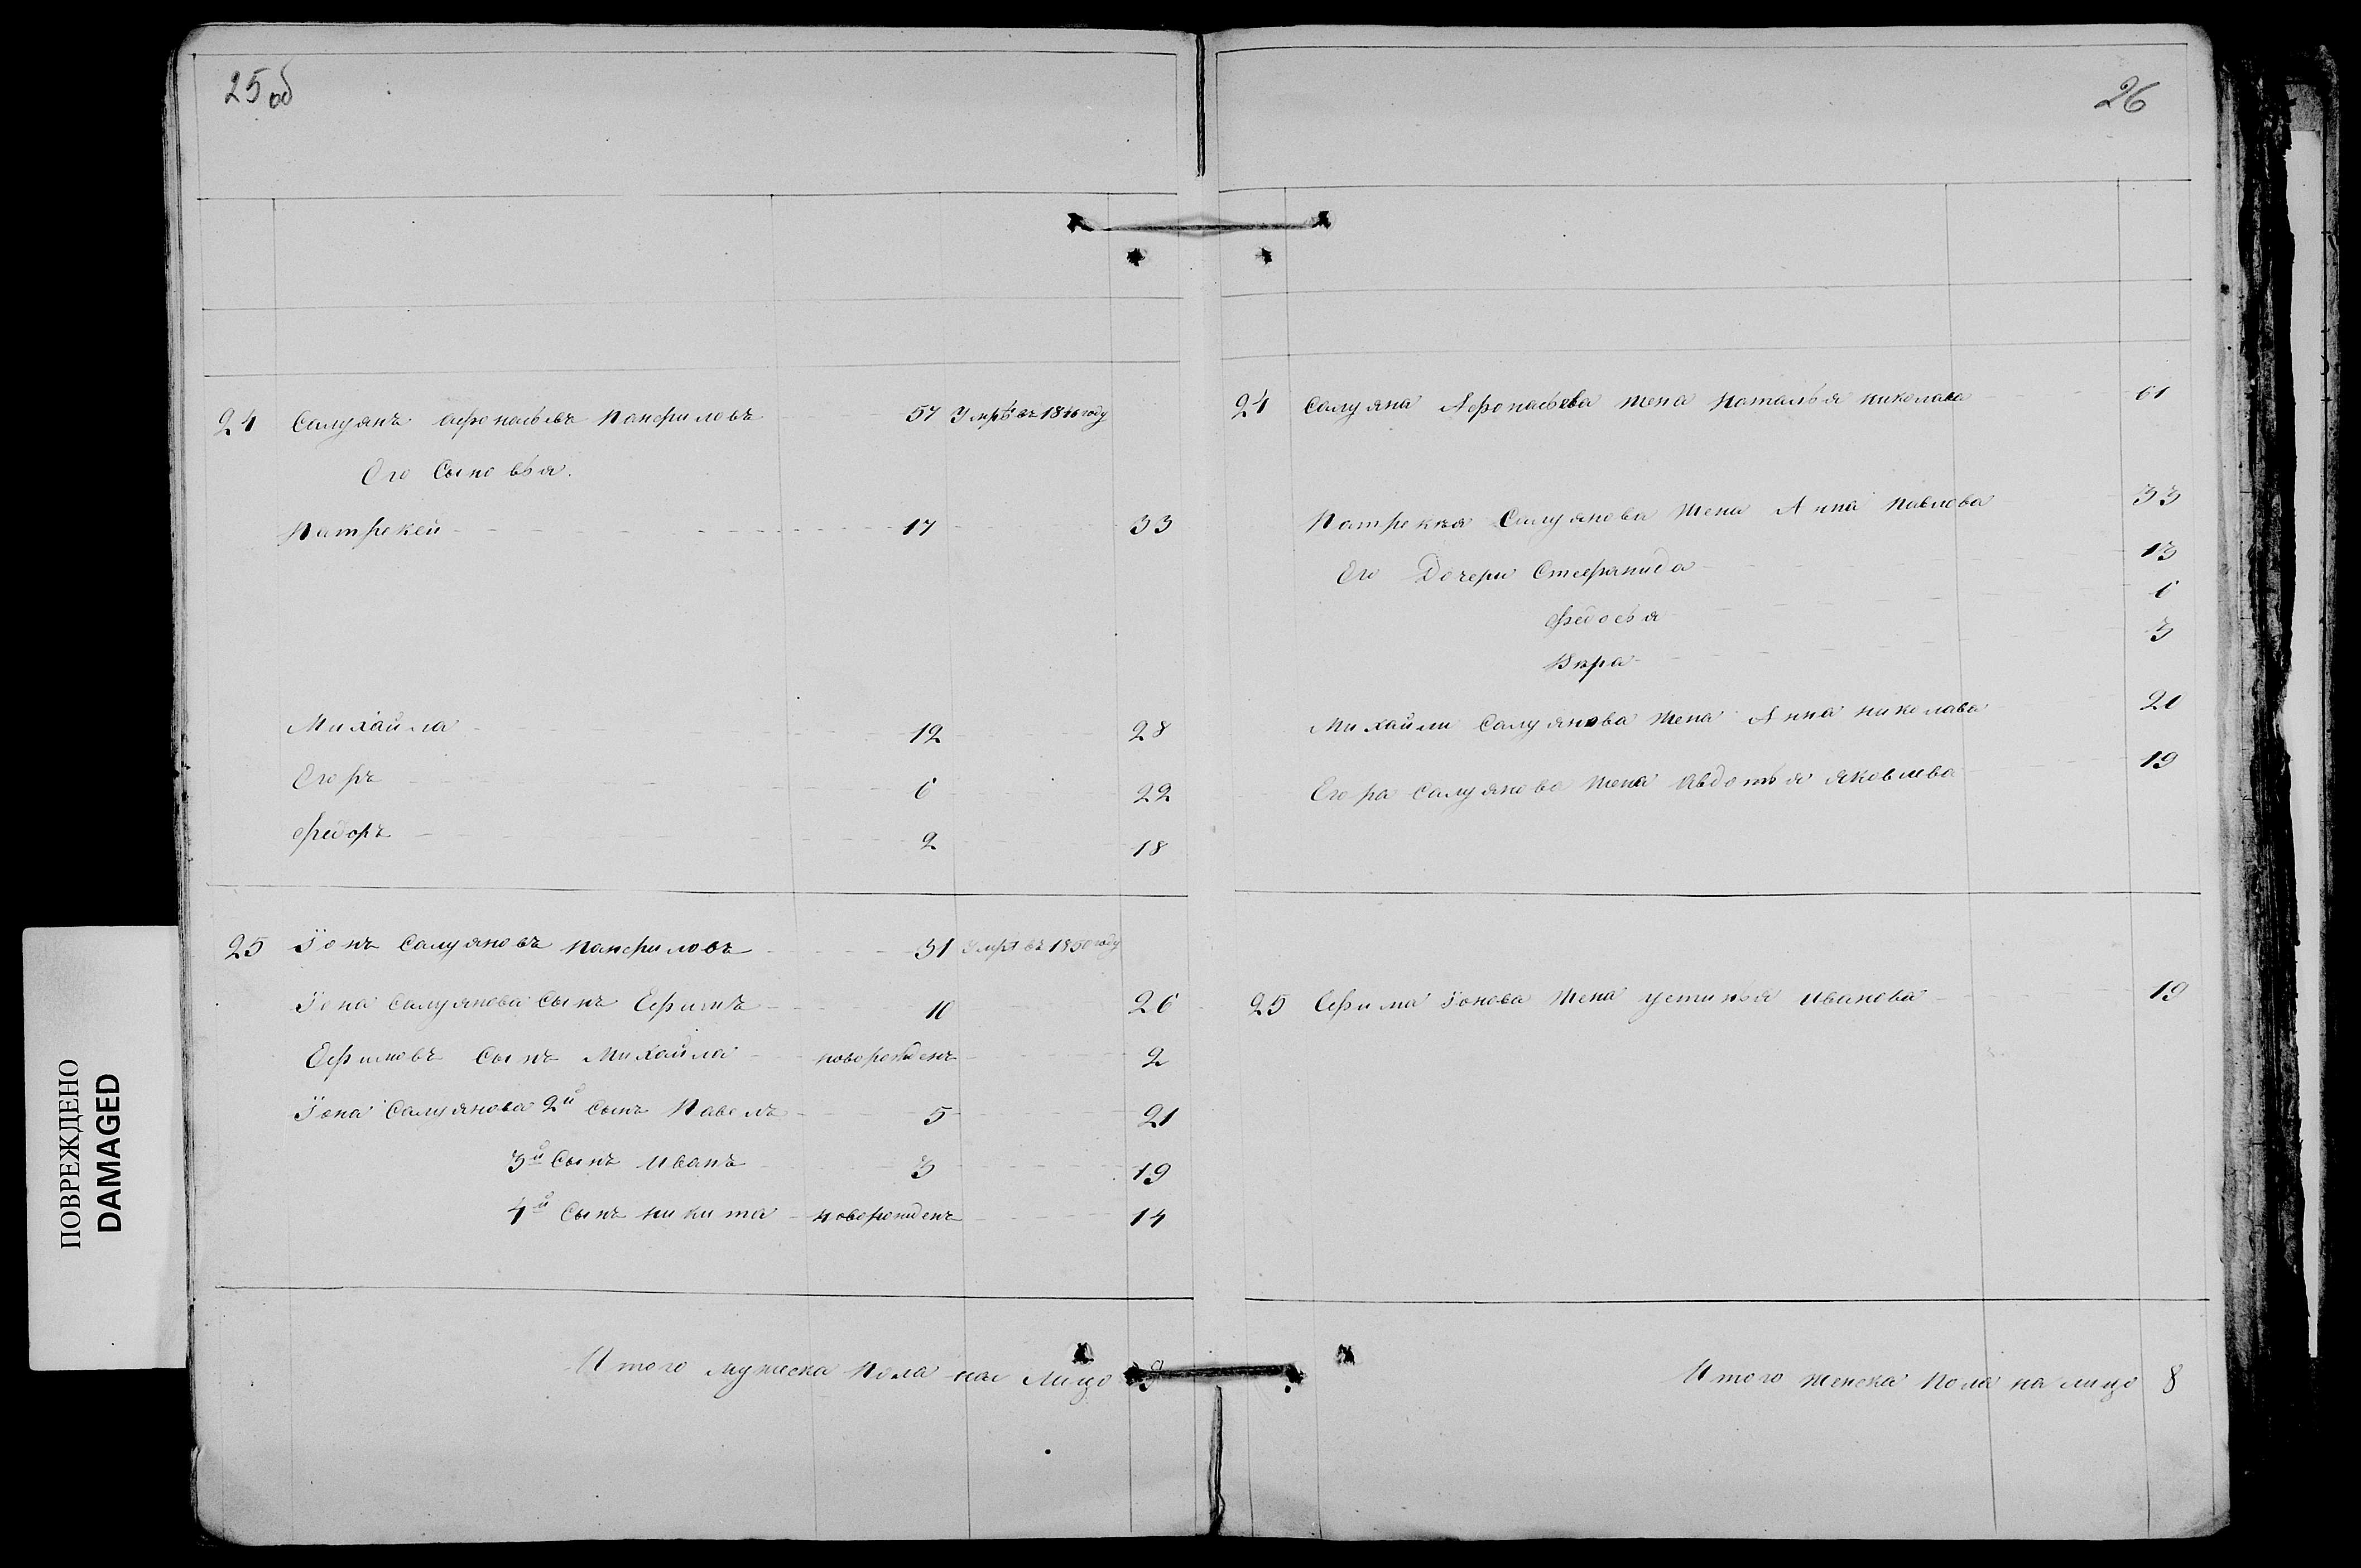 25 об
24 Салуянъ Афонасьевъ Панфиловъ 57 Умръ въ 1836 году
Его Сыновья.
Патрекей 17 33
Михайла 12 28
Егоръ 6 22
Федоръ 2 18
25 Іонъ Салуяновъ Панфиловъ 31 Умръ въ 1850 году
Іона Салуянова Сынъ Ефимъ 10 26
Ефимовъ Сынъ Михайла новорожденъ 2
Іона Салуянова 2й Сынъ Павелъ 5 21
3й Сынъ Иванъ 3 19
4й Сынъ Никита новорожденъ 14
Итого мужеска пола на лицо 9
26
24 Салуяна Афонасьева жена Наталья Николава 61
Патрекѣя Салуянова жена Анна Павлова 33
Его Дочери Стефанида 13
Федосья 6
Вѣра 3
Михайлы Салуянова жена Анна Николава 20
Егора Салуянова жена Авдотья Яковлева 19
25 Ефима Іонова жена Устинья Иванова 19
Итого женска пола на лицо 8
ПОВРЕЖДЕНО
DAMAGED